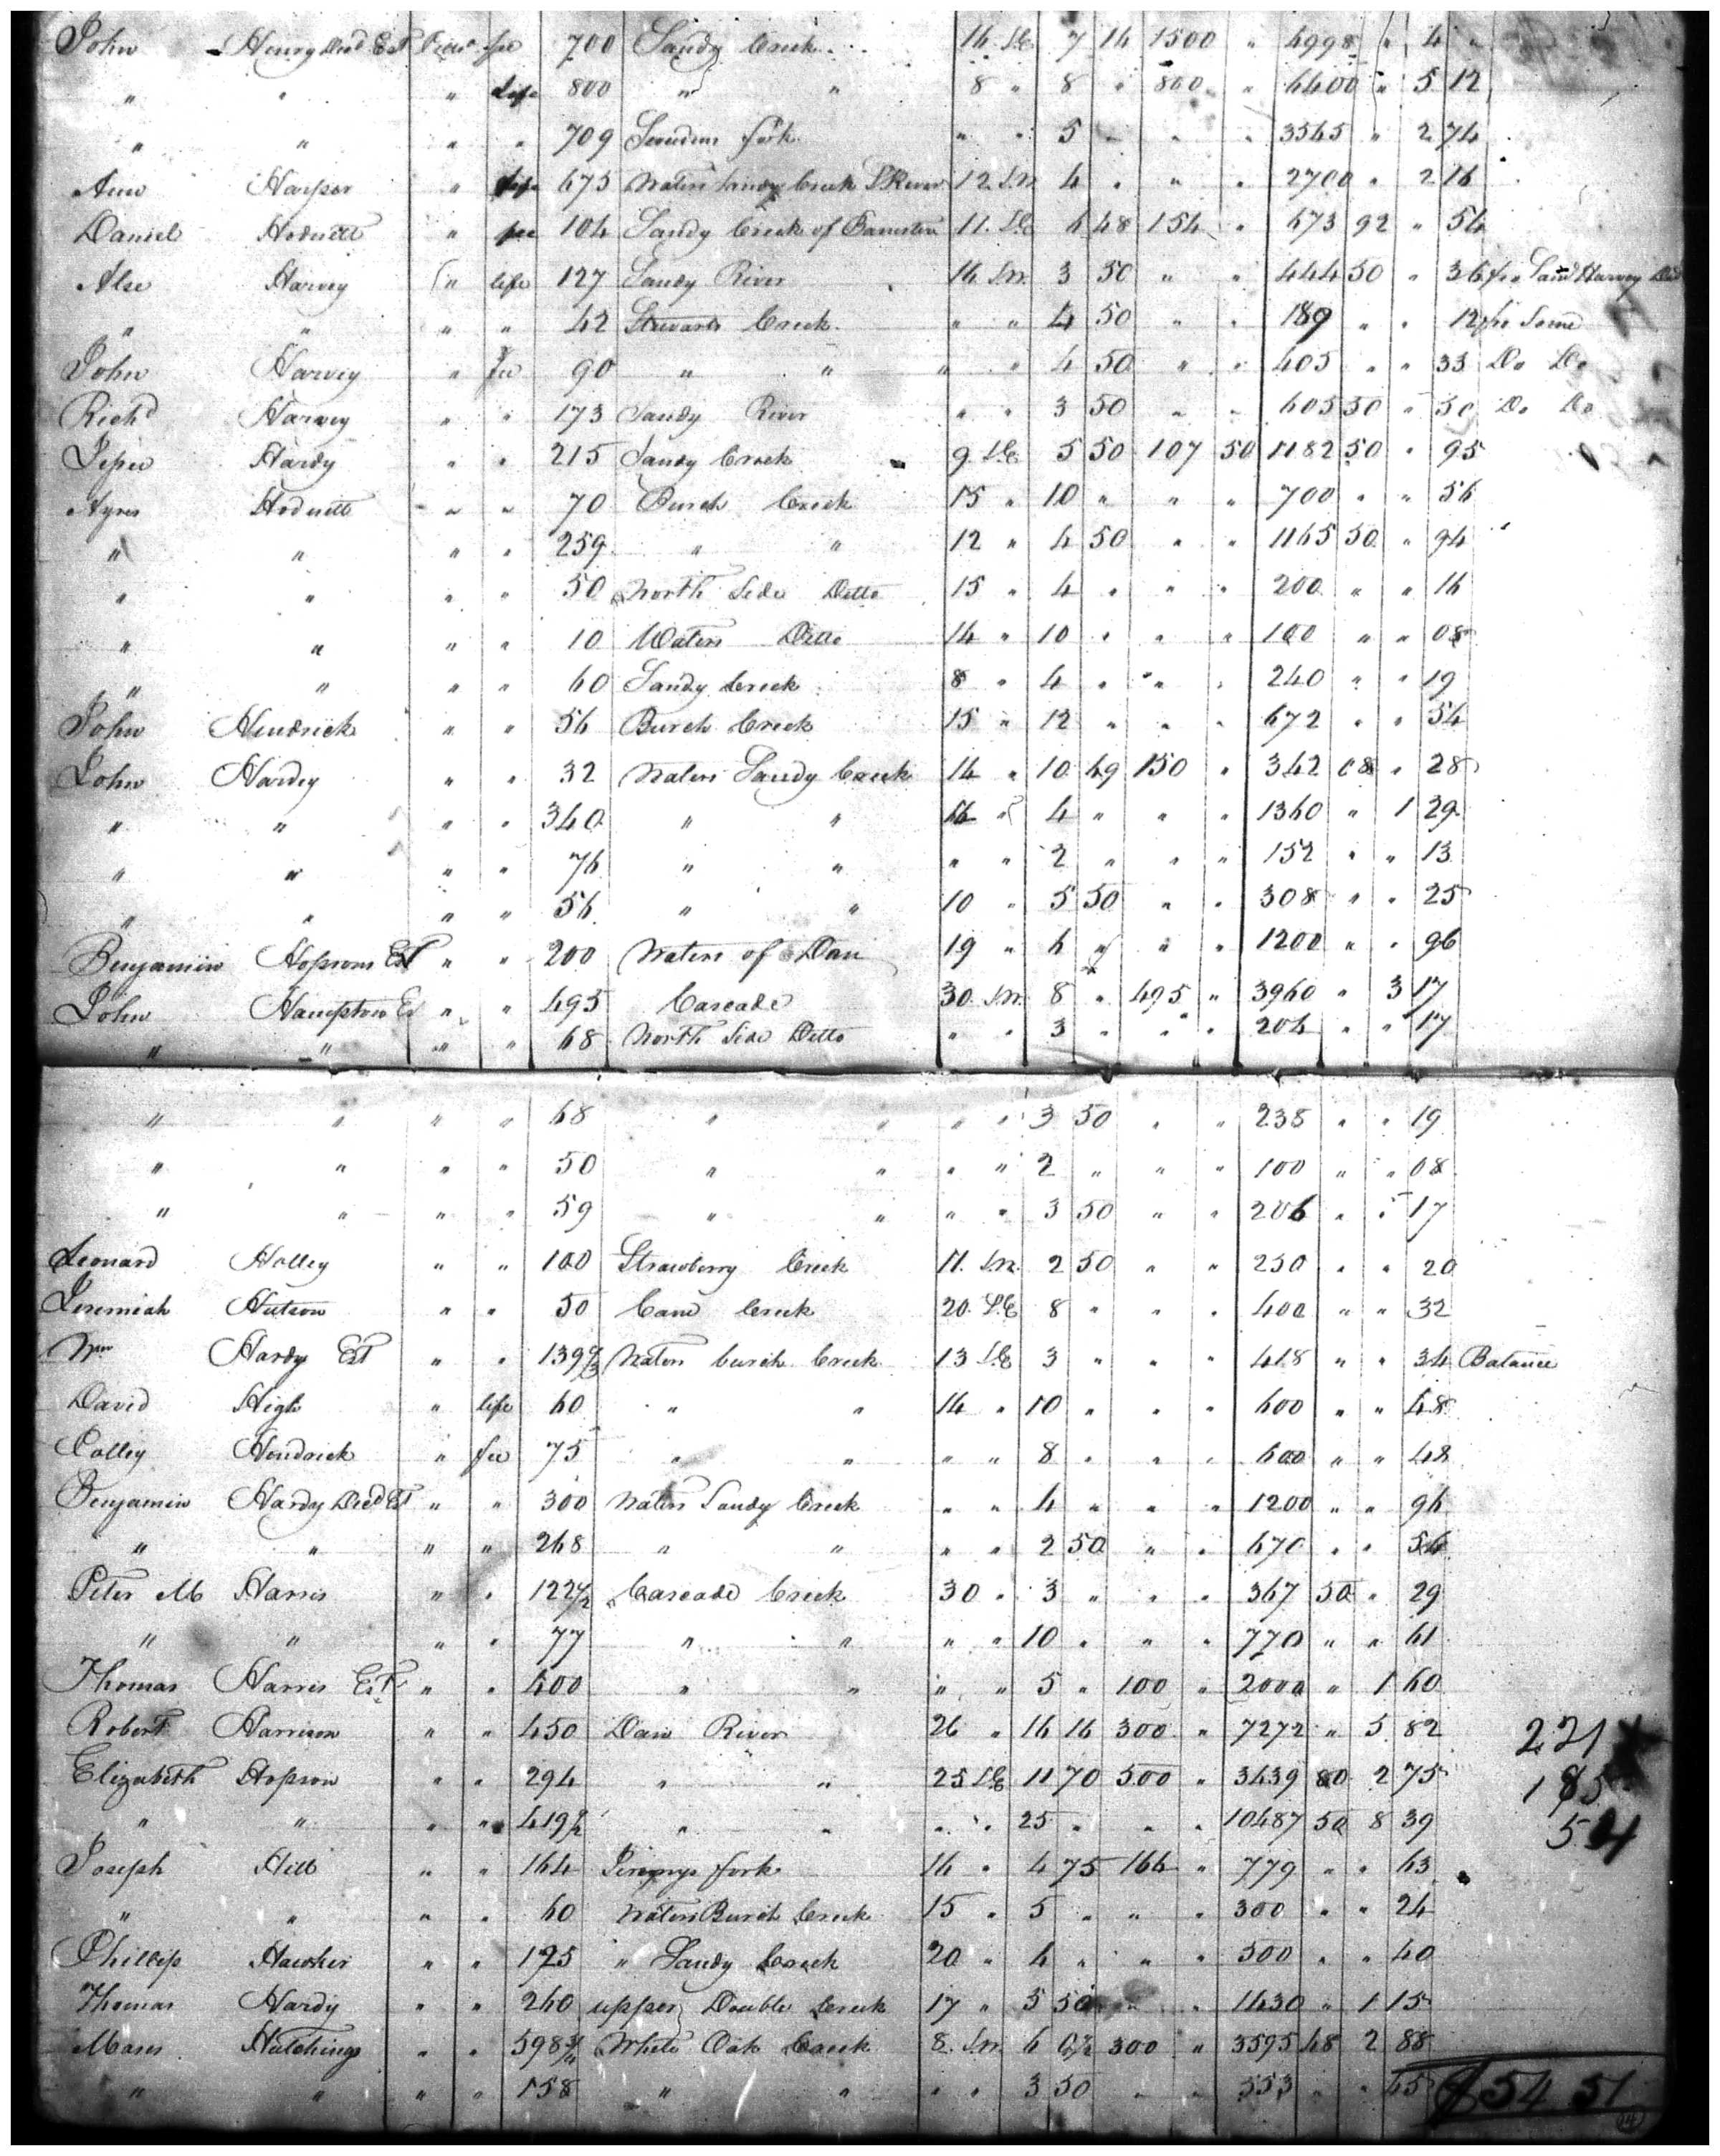 John Henry Decd Est fee 700 Sandy Creek 14 SE 7 14 1500 " 4998 " 4 "
" " " Life 800 " " 8 " 8 " 800 " 6400 " 5 12
" " " " 709 fork " " 5 " " " 3545 " 2 74
Ann Harper " Life 675 Waters Sandy Creek S River 12 SW 4 " " " 2700 " 2 16
Daniel Hodnett " fee 104 Sandy Creek of Banister 11 SE 6 48 154 " 673 92 " 54
Alse Harvey " life 127 Sandy River 14 SW 3 50 " " 444 50 " 36 Harvey Decd
" " " " 42 Stewarts Creek " " 4 50 " " 189 " " 12 Same
John Harvey " fee 90 " " " " 4 50 " " 405 " " 33 Do Do
Richd Harvey " " 173 Sandy River " " 3 50 " " 605 50 " 50 Do Do
Hardy " " 215 Sandy Creek 9 SE 5 50 107 50 1182 50 " 95
Ayres Hodnett " " 70 Burch Creek 15 " 10 " " " 700 " " 56
" " " " 259 " " 12 " 4 50 " " 1165 50 " 94
" " " " 50 North Side Ditto 15 " 4 " " " 200 " " 16
" " " " 10 Waters Ditto 14 " 10 " " " 100 " " 08
" " " " 60 Sandy Creek 8 " 4 " " " 240 " " 19
John Hendrick " " 56 Burch Creek 15 " 12 " " " 672 " " 54
John Hardey " " 32 Waters Sandy Creek 14 " 10 69 150 " 342 08 " 28
" " " " 340 " " 16 " 4 " " " 1360 " 1 29
" " " " 76 " " " " 2 " " " 152 " " 13
" " " " 56 " " 10 " 5 50 " " 308 " " 25
Benjamin Hopsons Est " " 200 Waters of Dan 19 " 6 " " " 1200 " " 96
John Hampton Es " " 495 Cascade 30 SW 8 " 495 " 3960 " 3 17
" " " " 68 North Side Ditto " " 3 " " " 204 " " 17
" " " " 68 " " " " 3 50 " " 238 " " 19
" " " " 50 " " " " 2 " " " 100 " " 08
" " " " 59 " " " " 3 50 " " 206 " " 17
Leonard Holley " " 100 Strawberry Creek 11 SW 2 50 " " 250 " " 20
Jeremiah Hutson " " 50 Cane Creek 20 SE 8 " " " 400 " " 32
Wm Hardy Est " " 139 1/3 Waters Burch Creek 13 SE 3 " " " 418 " " 34 Balance
David High " life 60 " " 14 " 10 " " " 600 " " 48
Colley Hendrick " fee 75 " " " " 8 " " " 600 " " 48
Benjamin Hardy Decd Est " " 300 Waters Sandy Creek " " 4 " " " 1200 " " 96
" " " " 268 " " " " 2 50 " " 670 " " 54
Peter M Harris " " 122 1/2 Cascade Creek 30 " 3 " " " 367 50 " 29
" " " " 77 " " " " 10 " " " 770 " " 61
Thomas Harris Est " " 400 " " " " 5 " 100 " 2000 " 1 60
Robert Harrison " " 450 Dan River 26 " 16 16 300 " 7272 " 5 82
221
Elizabeth Hopson " " 294 " " 25 SE 11 70 500 " 3439 80 2 75
185
" " " " 419 1/2 " " " " 25 " " " 10487 50 8 39
54
Joseph Hill " " 164 fork 16 " 4 75 164 " 779 " " 63
" " " " 60 Waters Burch Creek 15 " 5 " " " 300 " " 24
Phillip Hawker " " 125 " Sandy Creek 20 " 4 " " " 500 " " 40
Thomas Hardy " " 260 upper Double Creek 17 " 5 50 " " 1430 " 1 15
Moses Hutchings " " 598 3/4 White Oak Creek 8 SW 6 300 " 3595 48 2 88
" " " " 158 " " " " 3 50 " " 553 " " 45
$54 51